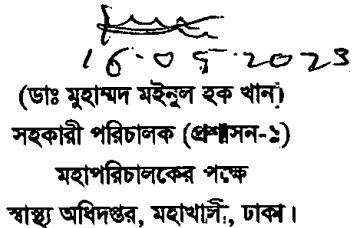 16.05.2023
(ডাঃ মুহাম্মদ মইনুল হক খান)
সহকারী পরিচালক (প্রশাসন-১)
মহাপরিচালকের পক্ষে
স্বাস্থ্য অধিদপ্তর, মহাখালী, ঢাকা।